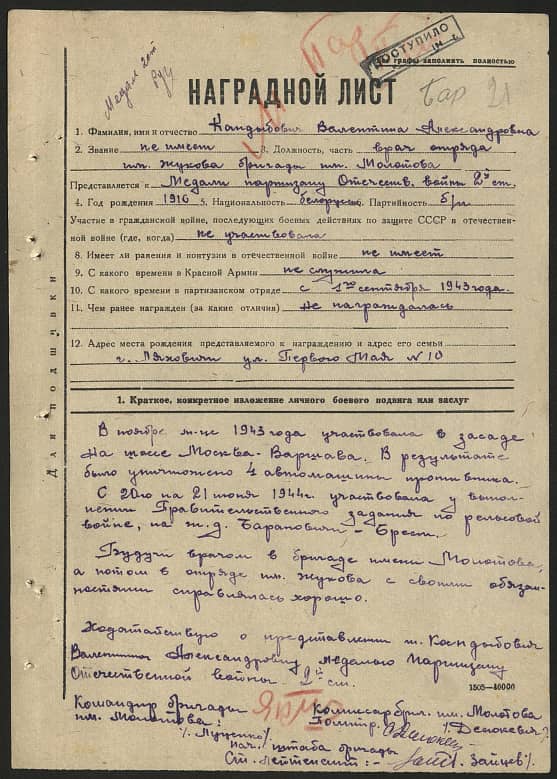 Медаль 2ст
ПОСТУПИЛО
графы заполнять полностью
НАГРАДНОЙ ЛИСТ
Бар 21
1. Фамилия, имя и отчество Кандыбович Валентина Александровна
2. Звание не имеет 3. Должность, часть врач отряда
им. Жукова бригады им. Молотова
Представляется к Медали партизану Отечеств. войны 2й ст.
4. Год рождения 1916 5. Национальность белоруска 6. Партийность б/п
Участие в гражданской войне, последующих боевых действиях по защите СССР и отечествен-
ной войне (где, когда) не участвовала
8. Имеет ли ранения и контузии в отечественной войне не имеет
9. С какого времени в Красной Армии не служила
10. С какого времени в партизанском отряде с 1го сентября 1943 года.
11. Чем ранее награжден (за какие отличия) Не награждалась
12. Адрес места рождения представляемого к награждению и адрес его семьи
г. Ляховичи ул. Первого Мая N 10
Для подшивки
1. Краткое, конкретное изложение личного боевого подвига или заслуг
В ноябре м-це 1943 года участвовала в засаде
на шоссе Москва-Варшава. В результате
было уничтожено 4 автомашины противника.
С 20го на 21 июня 1944г. участвовала у выпол-
нении Правительственного задания по рельсовой
войне, на ж.д. Барановичи - Брест.
Будучи врачом в бригаде имени Молотова,
а потом в отряде им. Жукова с своими обязан-
ностями справлялась хорошо.
Ходатайствую о представлении т. Кандыбович
Валентины Александровну медалью Партизану
Отечественной войны 2й ст.
1505—40000
Командир бригады
им. Молотова:
/Луценко/
Комиссар бриг. им. Молотова
/Денокевич/
Нач. штаба бригады
Ст. лейтенант: - /Зайцев/